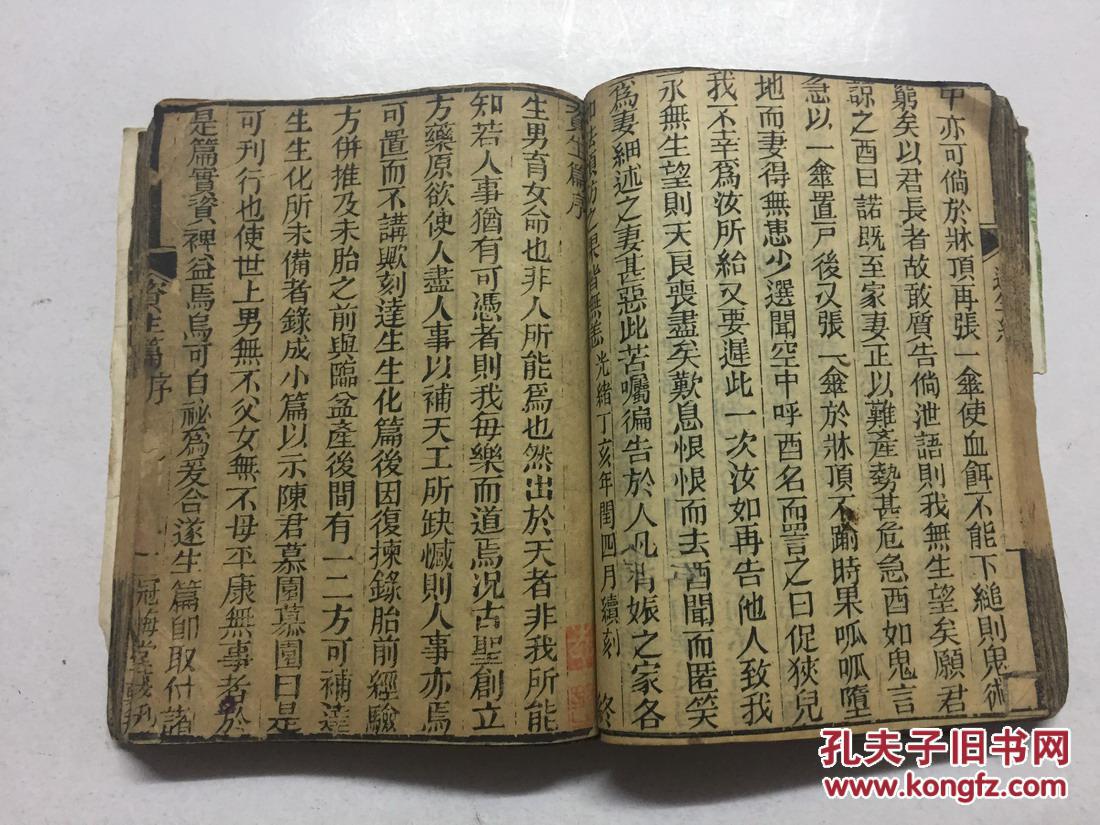 中亦可倘於牀頂再張一傘使血餌不能下縋則鬼術
窮矣以君長者故敢質告倘泄語則我無生望矣願君
諒之酉曰諾既至家妻正以難產勢甚危急酉如鬼言
急以一傘置戸後又張一傘於牀頂不踰時果呱呱墮
地而妻得無恙少選聞空中呼酉名而詈之曰促狹兒
我不幸爲汝所紿又要遲此一次汝如再告他人致我
永無生望則天良喪盡矣歎息恨恨而去酉聞而匿笑
爲妻細述之妻甚惡此苦囑徧告於人凡有娠之家各
如法預防之果皆無恙 光緒丁亥年閏四月續刻 終
資生篇序
生男育女命也非人所能爲也然出於天者非我所能
知若人事猶有可憑者則我毎樂而道焉况古聖創立
方藥原欲使人盡人事以補天工所缺憾則人事亦焉
可置而不講歟刻達生生化篇後因復揀錄胎前經驗
方併推及未胎之前與臨盆產後間有一二方可補達
生生化所未備者錄成小篇以示陳君慕園慕園曰是
可刊行也使世上男無不父女無不母平康無事者於
是篇實資裨益焉烏可自祕爲爰合遂生篇卽取付諸
資生篇序
一
冠悔堂
孔夫子旧书网
www.kongfz.com